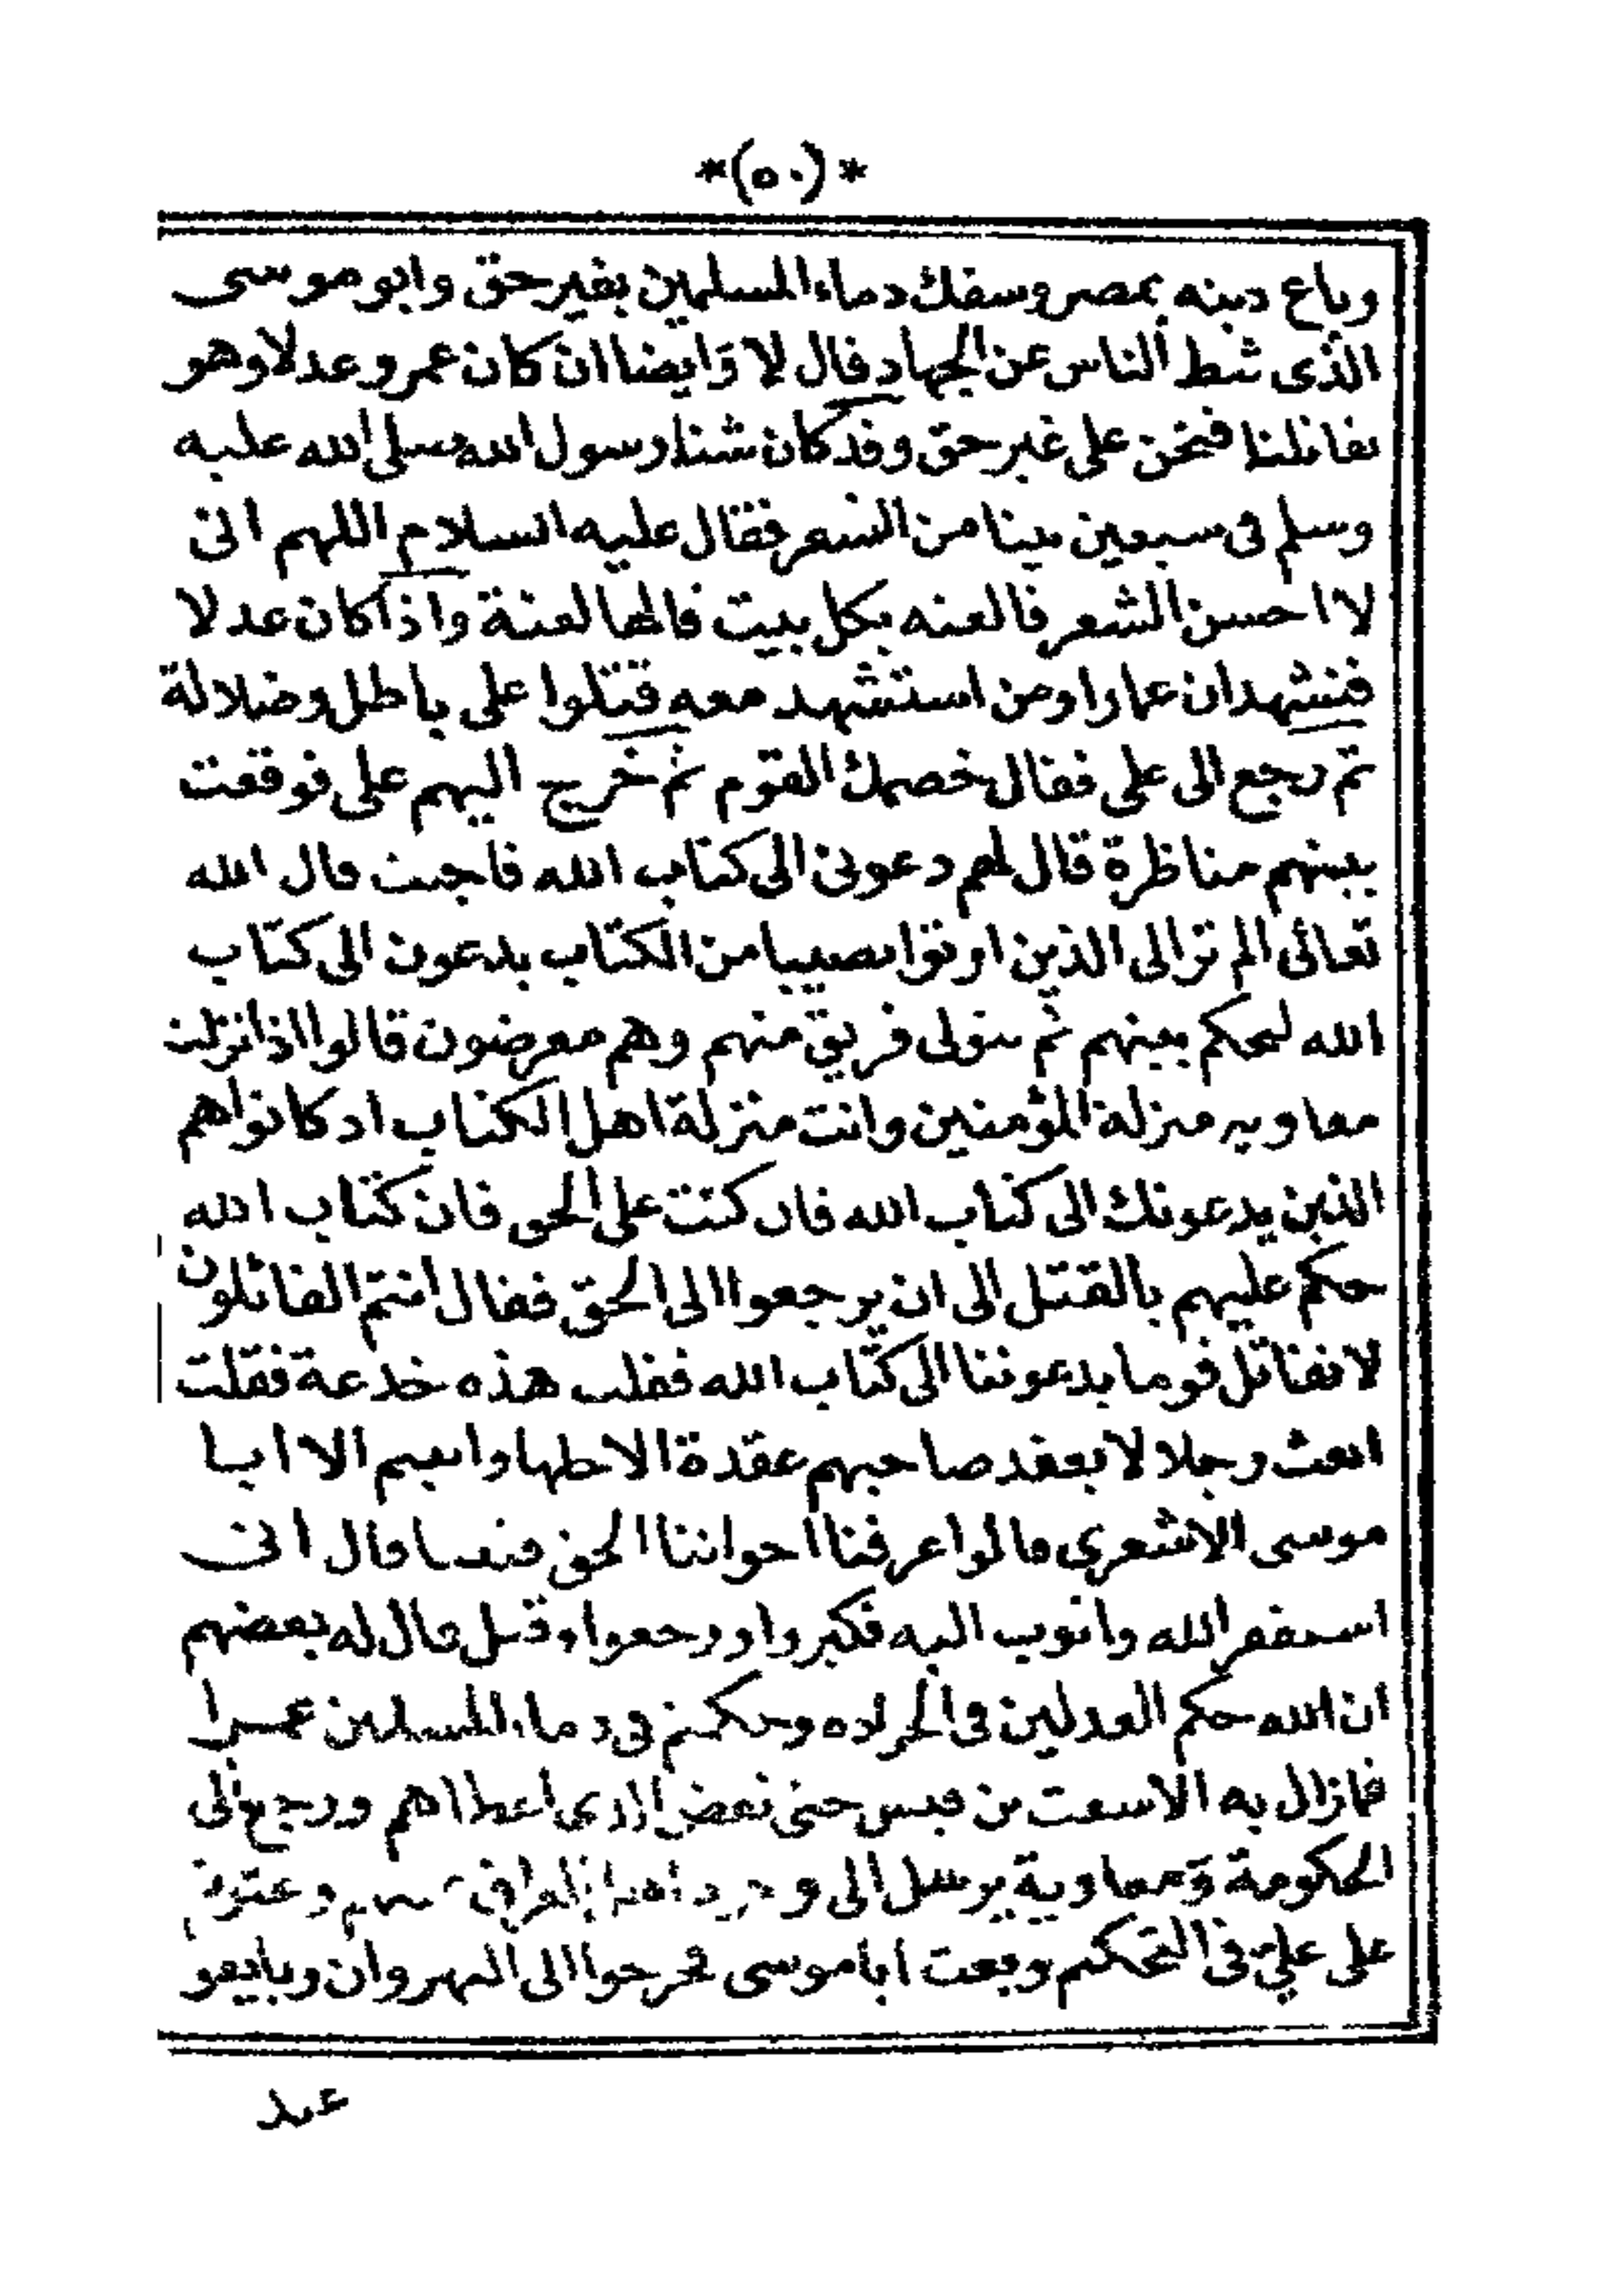 *(٥٠)*
وباع دينه بمصر وسفك دماء المسلمين بغير حق وابو موسى
الذى ثبط الناس عن الجهاد قال لا وَايضا ان كان عمرو عدلا وهو
يقاتلنا فنحن على غير حق وقد كان شتنا رسول الله صلى الله عليه
وسلم فى سبعين بيتا من الشعر فقال عليه السلام اللهم انى
لا احسن الشعر فالعنه بكل بيت قالها لعنة واذا كان عدلا
فنشهد ان عمارا ومن استشهد معه قتلوا على باطل وضلالة
ثم رجع الى على فقال خصمك القوم ثم خرج اليهم على فوقعت
بينهم مناظرة قال لهم دعونى الى كتاب الله فاجبت قال الله
تعالى الم تر الى الذين اوتوا نصيبا من الكتاب يدعون الى كتاب
الله ليحكم بينهم ثم يتولى فريق منهم وهم معرضون قالوا اذا نزلت
معاويه منزلة المؤمنين وانت منزلة اهل الكتاب اذ كانوا هم
الذين يدعونك الى كتاب الله فان كنت على الحق فان كتاب الله
حكم عليهم بالقتل الى ان يرجعوا الى الحق فقال انتم القائلون
لا نقاتل قوما يدعوننا الى كتاب الله فقلت هذه خدعة فقلت
ابعث رجلا لا يعقد صاحبهم عقدة الا حلها وابيتم الا ابا
موسى الاشعرى قالوا عرفنا اخواننا الحق قال انى
استغفر الله واتوب اليه فكبروا ورجعوا وقيل قال له بعضهم
ان الله حكم العدلين فى الجرادة وحكمتم فى دماء المسلمين عمرا
فما زال به الاشعث بن قيس حتى نقض الذى اعطاهم ورجع الى
الحكومة وَمعاوية يرسل الى وعتوا
على علىّ فى التحكم وبعث ابا موسى فخرجوا الى النهروان وبايعو
عبد